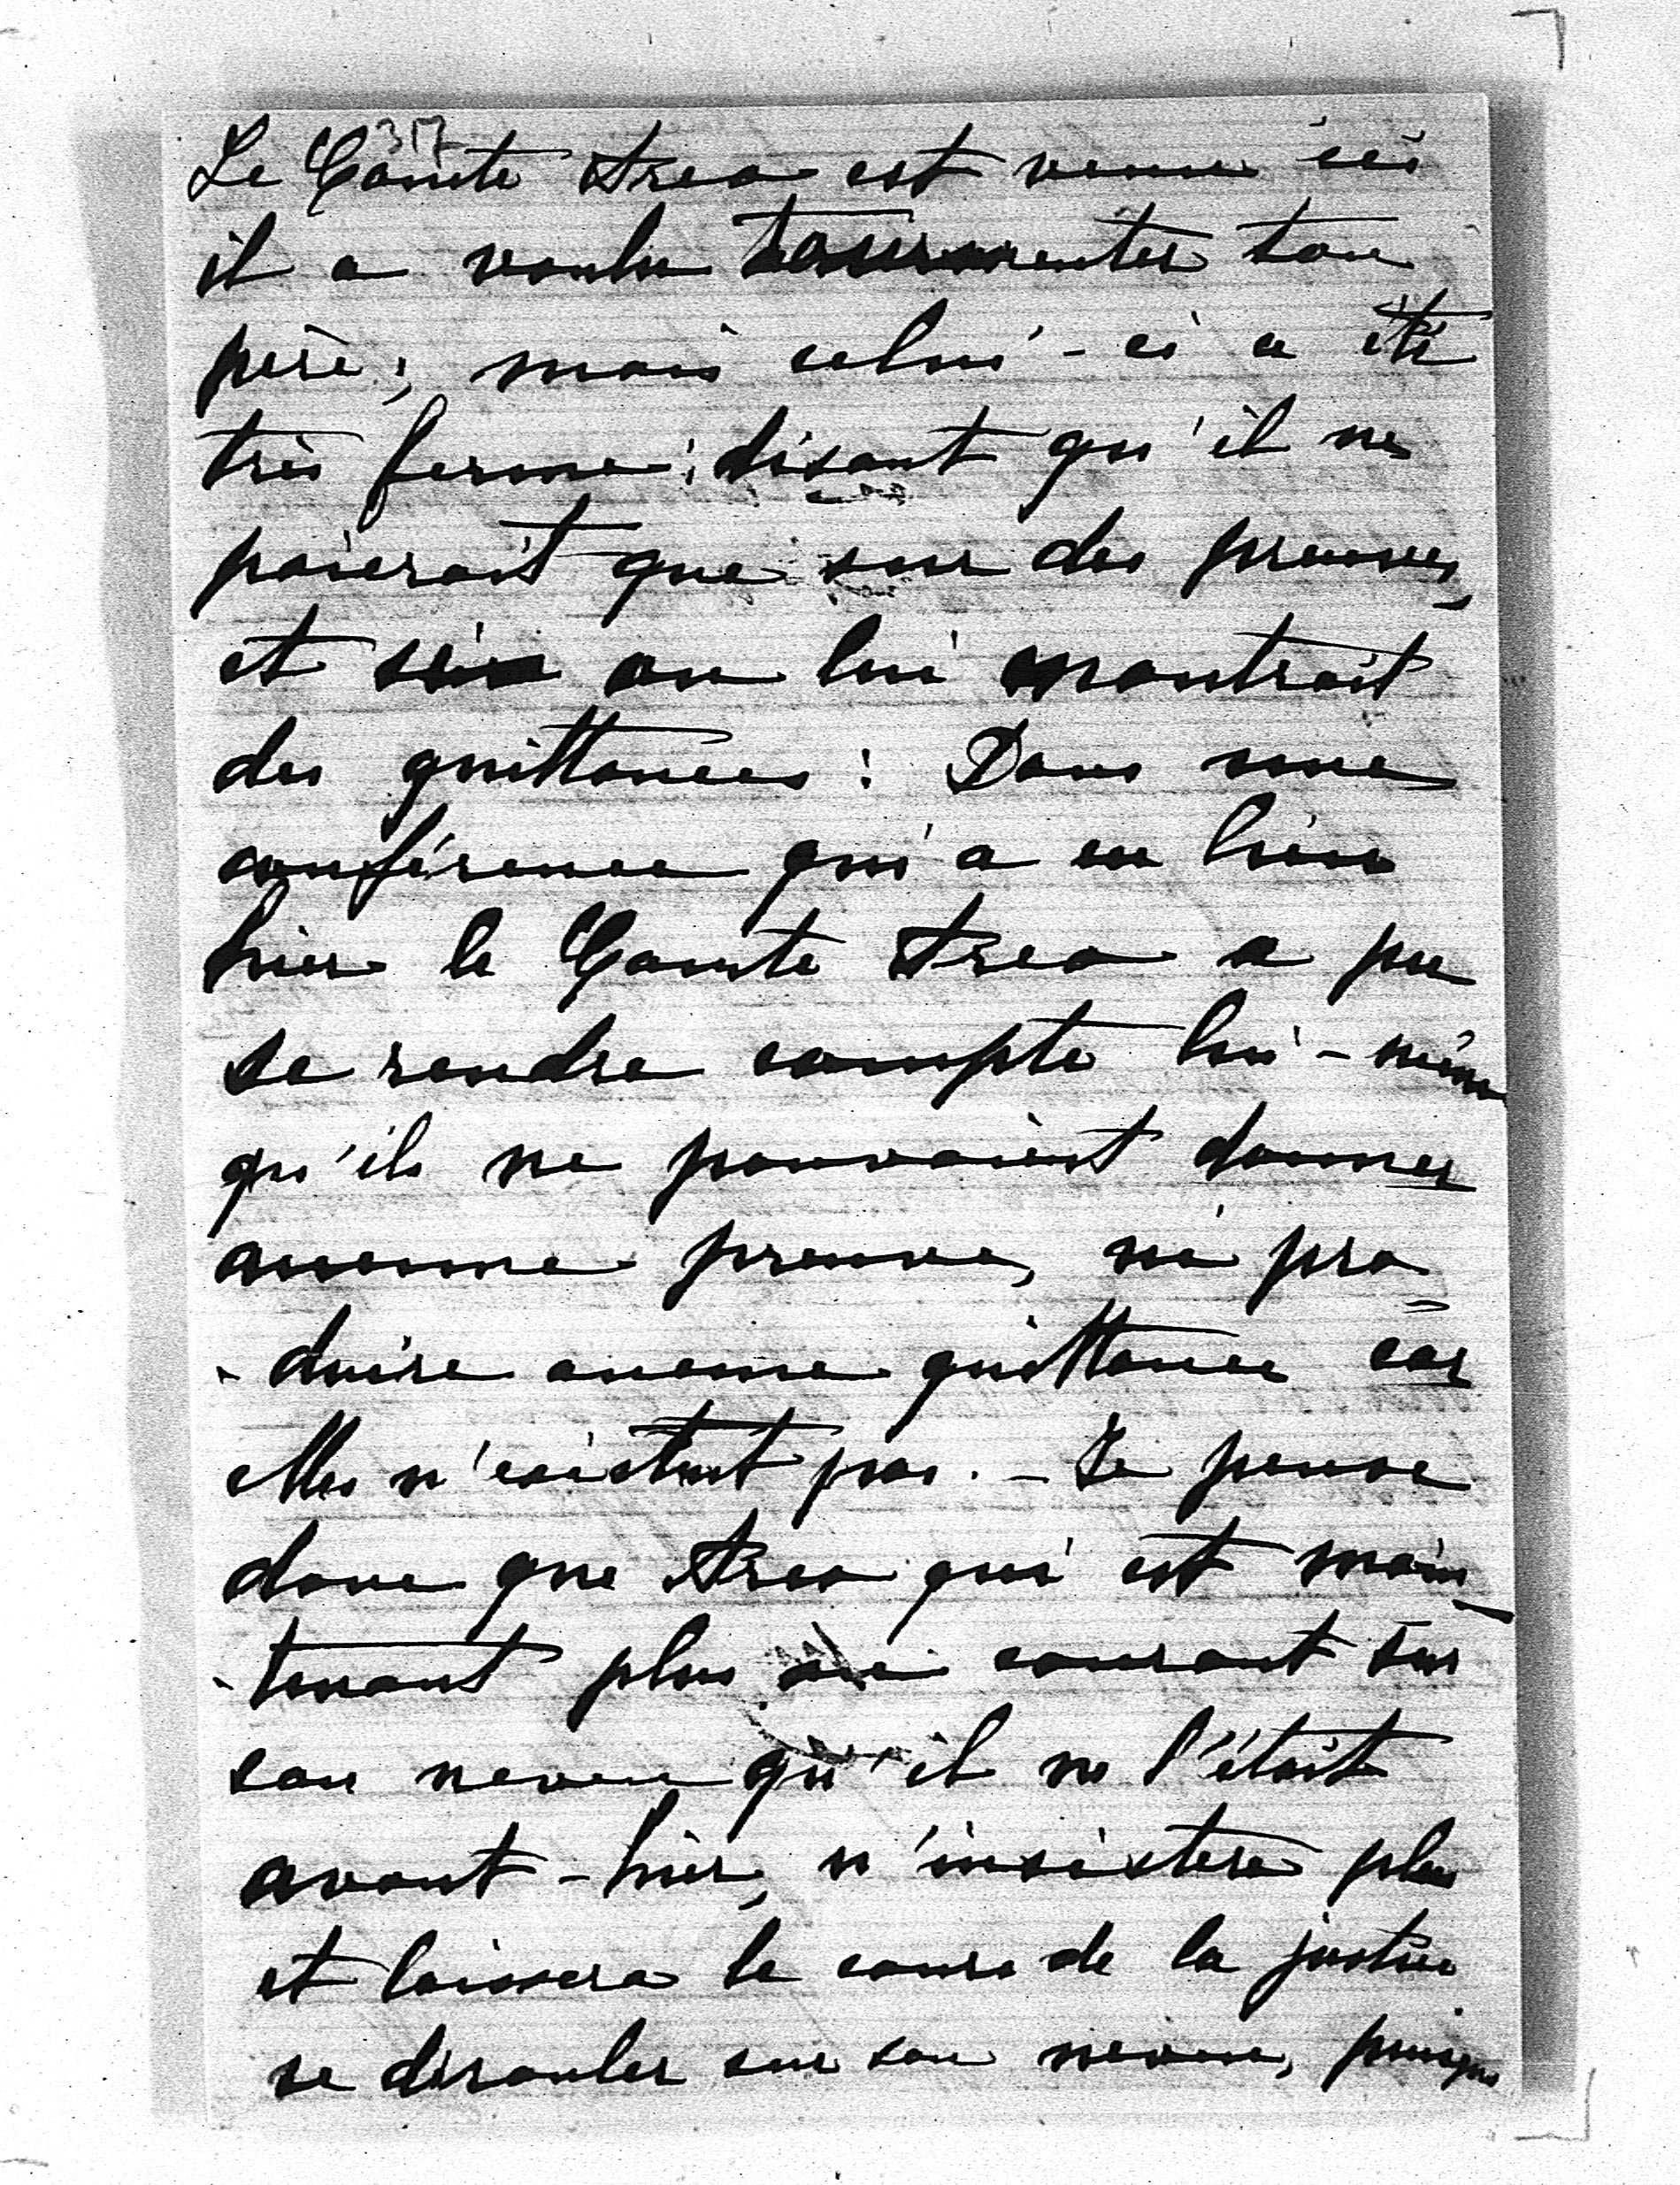 317
Le Comte Arco est venu ici
il a voulu tourmenter ton
père; mais celui-ci a été
très ferme: disant qu'il ne
paierait que sur des preuves,
et si on lui montrait
des quittances: Dans une
conférence qui a eu lieu
hier le Comte Arco a pu
se rendre compte lui-même
qu'ils ne pouvaient donner
aucune preuve, ni pro
-duire aucune quittance car
elles n'existent pas. - Je pense
donc que Arco qui est main
-tenant plus au courant sur
son neveu qu'il ne l'était
avant-hier, n'insistera plus
et laissera le cours de la justice
se dérouler sur son neveu, puisque